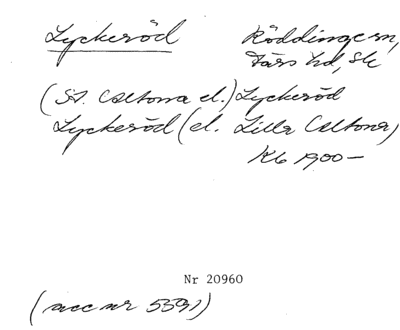 Lyckeröd Röddinge sn,
Färs hd, Sk
(St. Caltona el.) Lyckeröd
Lyckeröd (el. Lilla Caltona)
Kb 1900–
Nr 20960
(acc nr 5591)